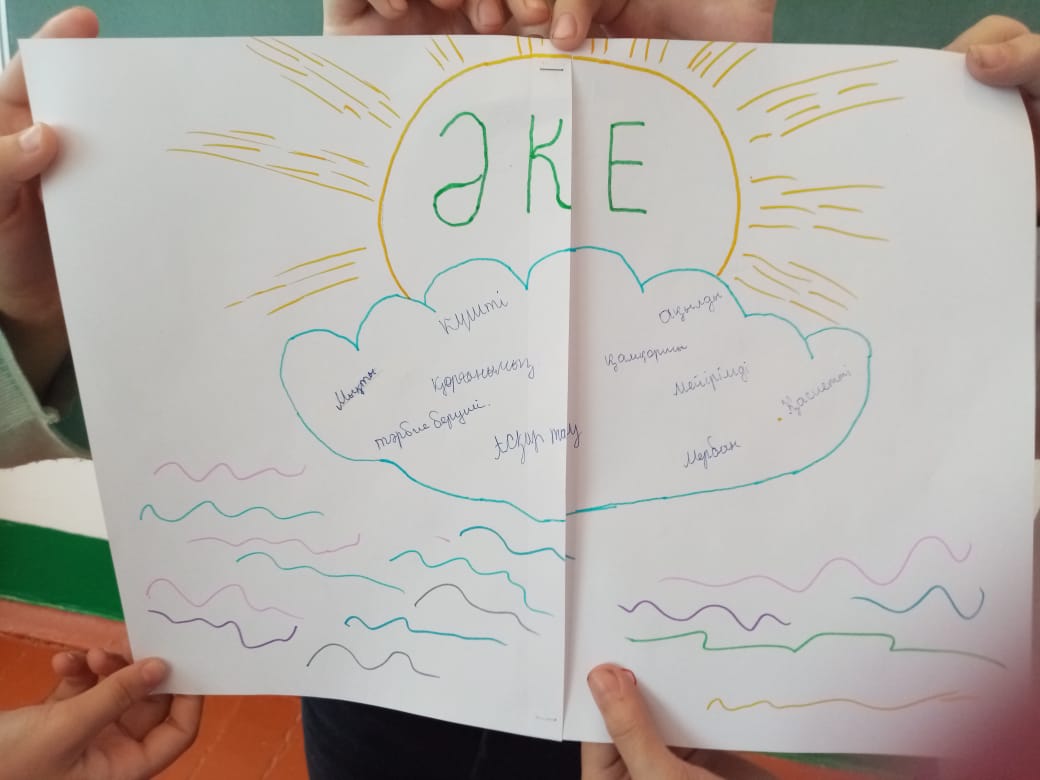 ӘКЕ
күшті
ақылды
Мықты
қорғанымың
қамқоршы
Мейірімді
Қасиетті
тәрбие беруші.
Асқар тау
Мербан